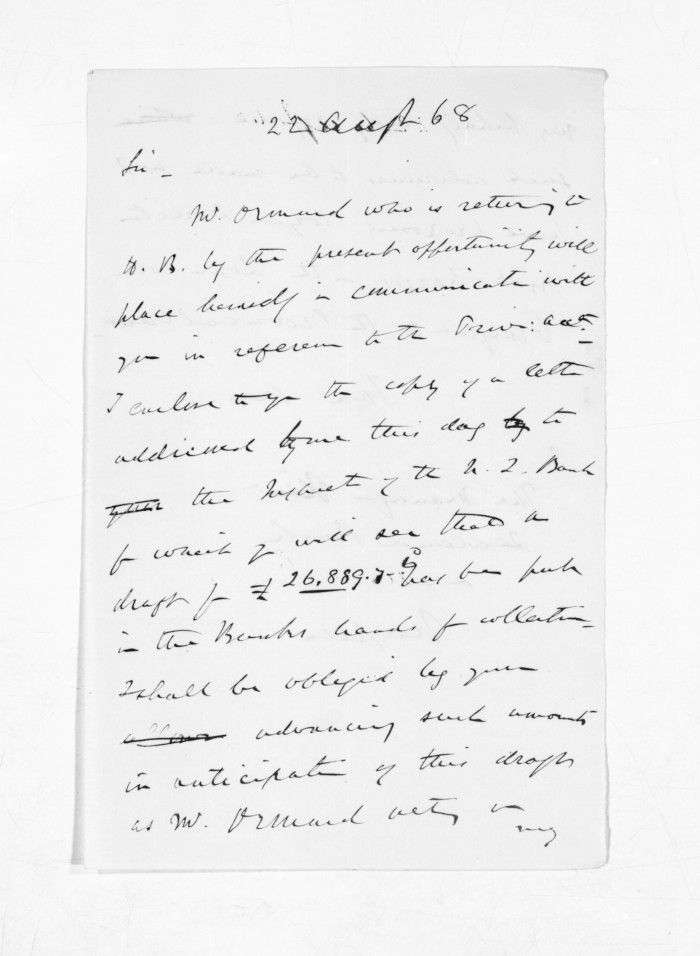 22 Augt 68
Sir -
Mr. Ormond who is returning to
H. B. by the present opportunity will
place himself in communication with
you in reference to the Prov: acct.
I enclose to you the copy of a letter
addressed by me this day by to
the Inspector of the N. Z. Bank
fr which yr will see that a
draft fr £26,889.7.6 has been put
in the Banks hands fr collection
I shall be obliged by your
allowing advancing such amounts
in anticipation of this draft
as Mr. Ormond acting on
my